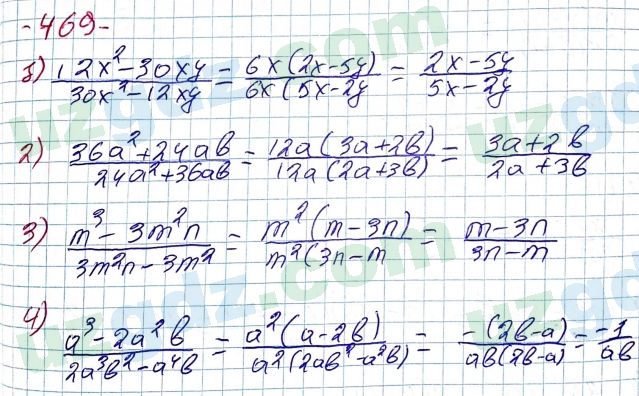 -469-
1) 12x²-30xy / 30x²-12xy = 6x(2x-5y) / 6x(5x-2y = 2x-5y / 5x-2y
2) 36a²+24ab / 24a²+36ab = 12a(3a+2b) / 12a(2a+3b) = 3a+2b / 2a+3b
3) m³-3m²n / 3m²n-3m² = m²(m-3n) / m²(3n-m = m-3n / 3n-m
4) a³-2a²b / 2a³b²-a⁴b = a²(a-2b) / a²(2ab²-a²b) = -(2b-a) / ab(2b-a) = -1 / ab
uzgdz.com